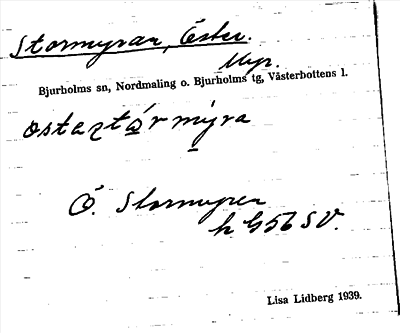 Stormyran, Öster.
Myr.
Bjurholms sn, Nordmaling o. Bjurholms tg, Västerbottens l.
ostaztǻr mỳra
Ö. Stormyren
h G56 SV.
Lisa Lidberg 1939.